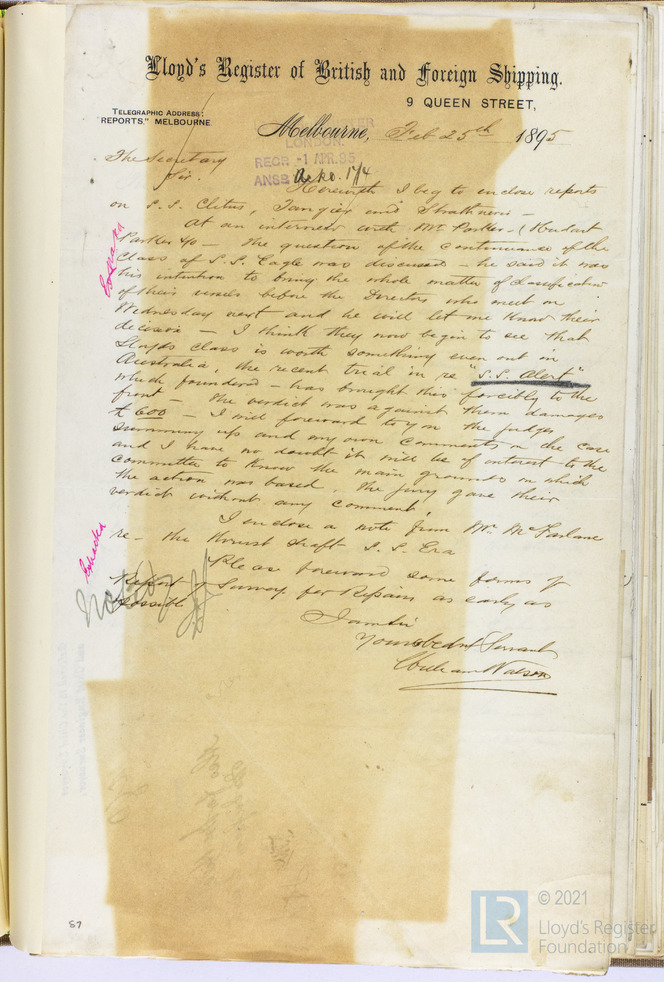 Lloyd's Register of British and Foreign Shipping.
9 QUEEN STREET,
TELEGRAPHIC ADDRESS:
"REPORTS," MELBOURNE
Melbourne, Feb 25th 1895
LONDON.
RECR -1 APR.95
ANSD Ackd. 17/4
The Secretary
Sir.
Herewith I beg to enclose reports
on S.S. Clitus, Tangier and Strathnevis -
At an interview with Mr Parker - (Huddart
Parker & Co - the question of the continuance of the
Class of S.S. Eagle was discussed - he said it was
his intention to bring the whole matter of Classification
of their vessels before the Directors who meet on
Wednesday next and he will let me know their
decision - I think they now begin to see that
Lloyds Class is worth something even out in
Australia, the recent trial in re "S.S. Alert"
which foundered - has brought this forcibly to the
front - the verdict was against them damages
£600 - I will forward to you the judges
summing up and my own comments on the case
and I have no doubt it will be of interest to the
committee to know the main grounds on which
the action was based, the jury gave their
verdict without any comment.
I enclose a note from Mr. McFarlane
re - the thrust shaft S.S. Era
Please forward some forms of
Report of Survey for Repairs as early as
possible
Noted
I am Sir
Your obedt Servant
William Watson
57
© 2021
LR
Lloyd's Register
Foundation